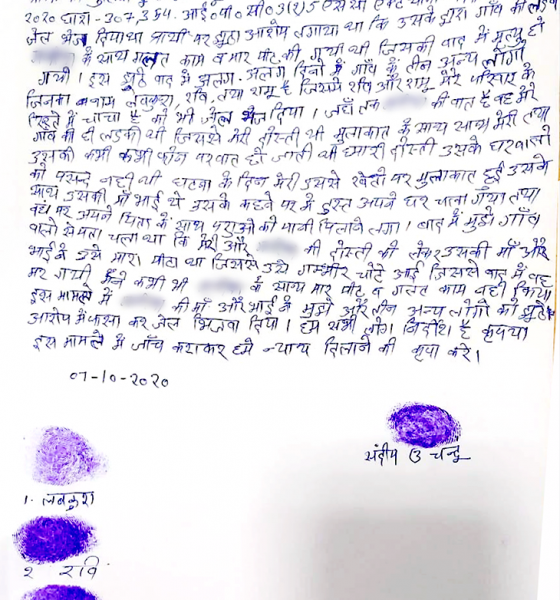 2020 धारा-307,354. आई०पी०सी० 3(2)5 एस सी एक्ट
जेल भेज दिया था प्रार्थी पर झूठा आरोप लगाया था कि उसके द्वारा गाँव की लड़की
के साथ गलत काम व मार पीट की गयी थी जिसकी बाद में मृत्यु हो
गयी। इस झूठे वाद में अलग, अलग दिनों में गाँव के तीन अन्य लोगों
जिनका नाम लवकुश, रवि, तथा रामू है जिसमें रवि और रामू मेरे परिवार के
रिश्ते में चाचा है को भी जेल भेज दिया। जहाँ तक की बात है वह मेरे
गाँव की ही लड़की थी जिससे मेरी दोस्ती थी मुलाकात के साथ साथ मेरी तथा
उसकी कभी कभी फोन पर बात हो जाती थी हमारी दोस्ती उसके घरवालो
को पसन्द नही थी घटना के दिन मेरी उससे खेतो पर मुलाकात हुई उसके
साथ उसकी माँ भाई थे उसके कहने पर में तुरन्त अपने घर चला गया तथा
वहां पर अपने पिता के साथ पशुओ को पानी पिलाने लगा। बाद में मुझे गाँव
वालो से पता चला था कि मेरी और की दोस्ती को लेकर उसकी माँ और
भाई के उसे मारा पीटा था जिससे उसे गम्भीर चोटे आई जिससे बाद में वह
मर गयी मैंने कभी भी के साथ मार पीट व गलत काम नहीं किया
इस मामले में की माँ और भाई के मुझे और तीन अन्य लोगो को झूठे
आरोप में फंसा कर जेल भिजवा दिया। हम सभी लोग निर्दोष है कृपया
इस मामले में जाँच कराकर हमे न्याय दिलाने की कृपा करे।
07-10-2020
संदीप उ चन्दू
1. लवकुश
2 रवि